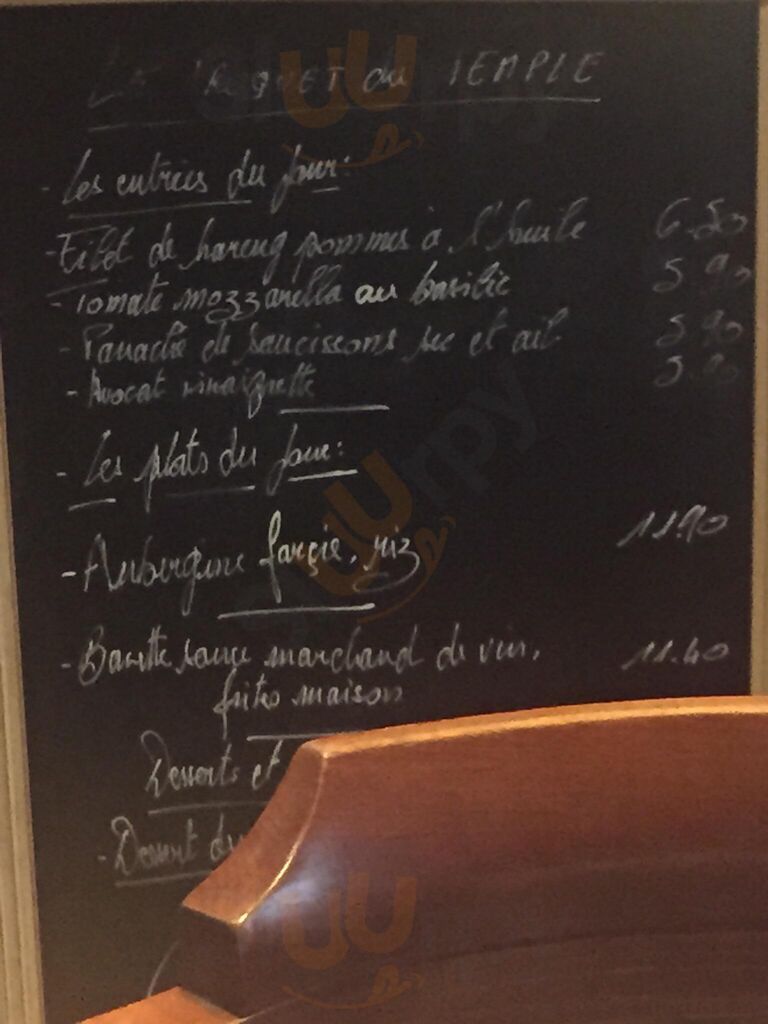 du TEMPLE
- Les entrées du Jour:
- Filet de hareng pommes à l'huile 6.50
- Tomate mozzarella au basilic 5.90
- Panaché de saucissons sec et ail 5.90
- Avocat vinaigrette 5.90
- Les plats du Jour:
- Aubergine farçie, riz 11.90
- Bavette sauce marchand de vin, 11.40
frites maison
Desserts et
- Dessert du